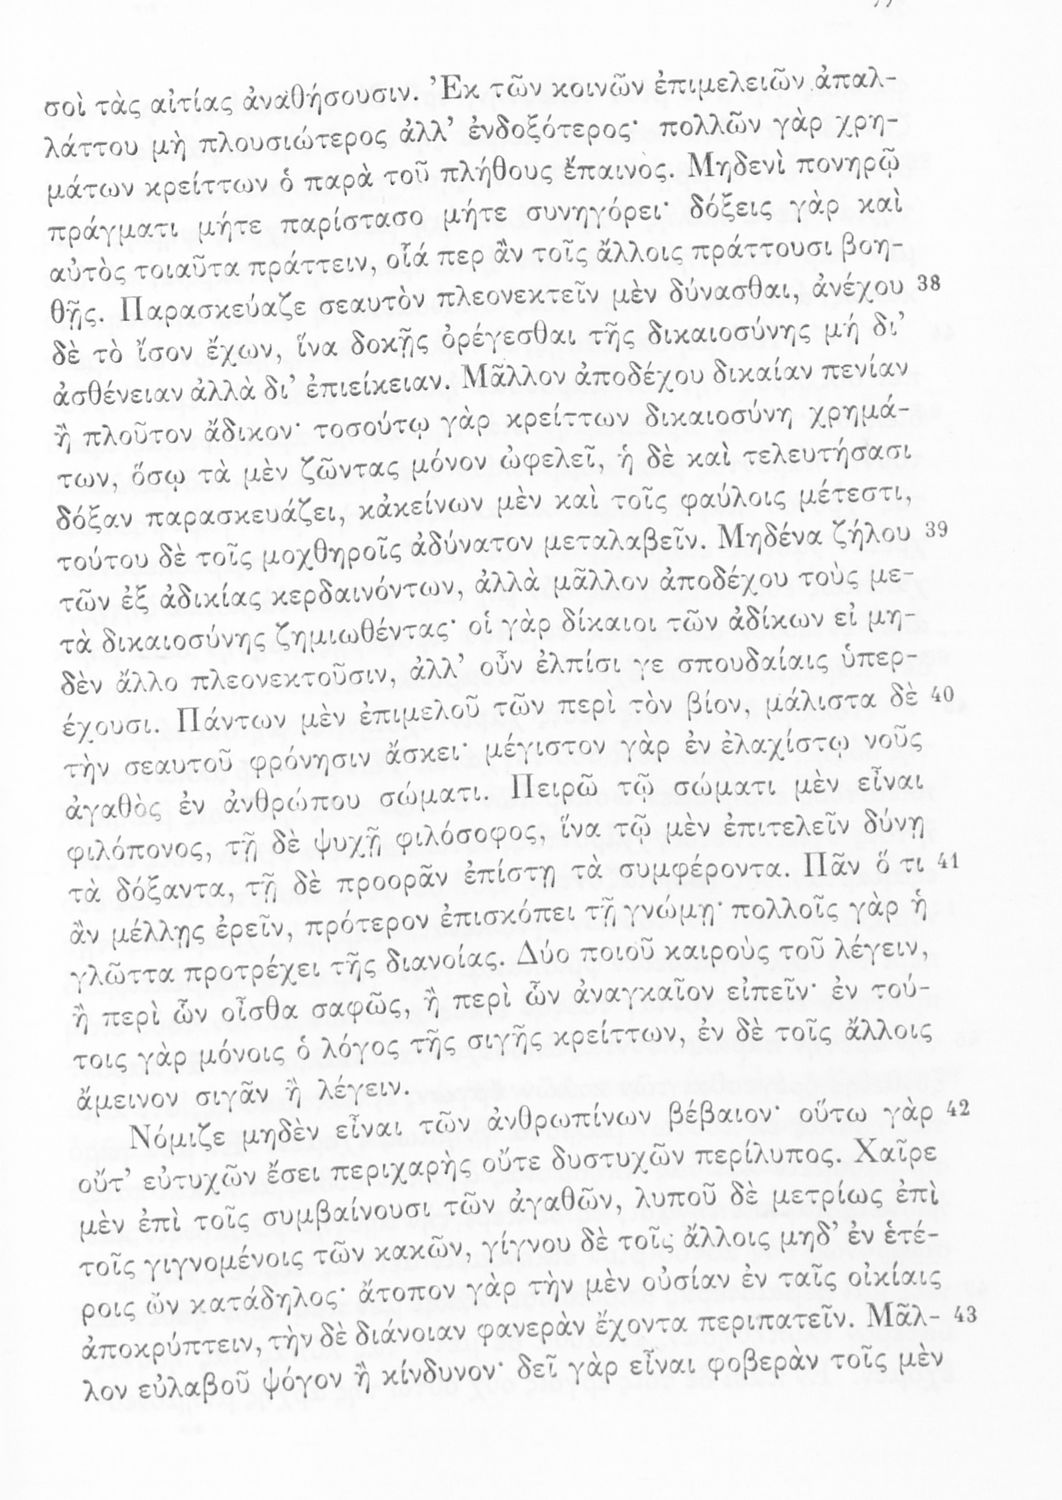 σοὶ τὰς αἰτίας ἀναθήσουσιν. Ἐκ τῶν κοινῶν ἐπιμελειῶν ἀπαλ-
λάττου μὴ πλουσιώτερος ἀλλ’ ἐνδοξότερος· πολλῶν γὰρ χρη-
μάτων κρείττων ὁ παρὰ τοῦ πλήθους ἔπαινος. Μηδενὶ πονηρῷ
πράγματι μήτε παρίστασο μήτε συνηγόρει· δόξεις γὰρ καὶ
αὐτὸς τοιαῦτα πράττειν, οἷά περ ἂν τοῖς ἄλλοις πράττουσι βοη-
θῇς. Παρασκεύαζε σεαυτὸν πλεονεκτεῖν μὲν δύνασθαι, ἀνέχου 38
δὲ τὸ ἴσον ἔχων, ἵνα δοκῇς ὀρέγεσθαι τῆς δικαιοσύνης μή δι’
ἀσθένειαν ἀλλὰ δι’ ἐπιείκειαν. Μᾶλλον ἀποδέχου δικαίαν πενίαν
ἢ πλοῦτον ἄδικον· τοσούτῳ γὰρ κρείττων δικαιοσύνη χρημά-
των, ὅσῳ τὰ μὲν ζῶντας μόνον ὠφελεῖ, ἡ δὲ καὶ τελευτήσασι
δόξαν παρασκευάζει, κἀκείνων μὲν καὶ τοῖς φαύλοις μέτεστι,
τούτου δὲ τοῖς μοχθηροῖς ἀδύνατον μεταλαβεῖν. Μηδένα ζήλου 39
τῶν ἐξ ἀδικίας κερδαινόντων, ἀλλὰ μᾶλλον ἀποδέχου τοὺς με-
τὰ δικαιοσύνης ζημιωθέντας· οἱ γὰρ δίκαιοι τῶν ἀδίκων εἰ μη-
δὲν ἄλλο πλεονεκτοῦσιν, ἀλλ’ οὖν ἐλπίσι γε σπουδαίαις ὑπερ-
έχουσι. Πάντων μὲν ἐπιμελοῦ τῶν περὶ τὸν βίον, μάλιστα δὲ 40
τὴν σεαυτοῦ φρόνησιν ἄσκει· μέγιστον γὰρ ἐν ἐλαχίστῳ νοῦς
ἀγαθὸς ἐν ἀνθρώπου σώματι. Πειρῶ τῷ σώματι μὲν εἶναι
φιλόπονος, τῇ δὲ ψυχῇ φιλόσοφος, ἵνα τῷ μὲν ἐπιτελεῖν δύνῃ
τὰ δόξαντα, τῇ δὲ προορᾶν ἐπίστῃ τὰ συμφέροντα. Πᾶν ὅ τι 41
ἂν μέλλῃς ἐρεῖν, πρότερον ἐπισκόπει τῇ γνώμῃ· πολλοῖς γὰρ ἡ
γλῶττα προτρέχει τῆς διανοίας. Δύο ποιοῦ καιροὺς τοῦ λέγειν,
ἢ περὶ ὧν οἶσθα σαφῶς, ἢ περὶ ὧν ἀναγκαῖον εἰπεῖν· ἐν τού-
τοις γὰρ μόνοις ὁ λόγος τῆς σιγῆς κρείττων, ἐν δὲ τοῖς ἄλλοις
ἄμεινον σιγᾶν ἢ λέγειν.
Νόμιζε μηδὲν εἶναι τῶν ἀνθρωπίνων βέβαιον· οὕτω γὰρ 42
οὔτ’ εὐτυχῶν ἔσει περιχαρὴς οὔτε δυστυχῶν περίλυπος. Χαῖρε
μὲν ἐπὶ τοῖς συμβαίνουσι τῶν ἀγαθῶν, λυποῦ δὲ μετρίως ἐπὶ
τοῖς γιγνομένοις τῶν κακῶν, γίγνου δὲ τοῖς ἄλλοις μηδ’ ἐν ἑτέ-
ροις ὢν κατάδηλος· ἄτοπον γὰρ τὴν μὲν οὐσίαν ἐν ταῖς οἰκίαις
ἀποκρύπτειν, τὴν δὲ διάνοιαν φανερὰν ἔχοντα περιπατεῖν. Μᾶλ- 43
λον εὐλαβοῦ ψόγον ἢ κίνδυνον· δεῖ γὰρ εἶναι φοβερὰν τοῖς μὲν